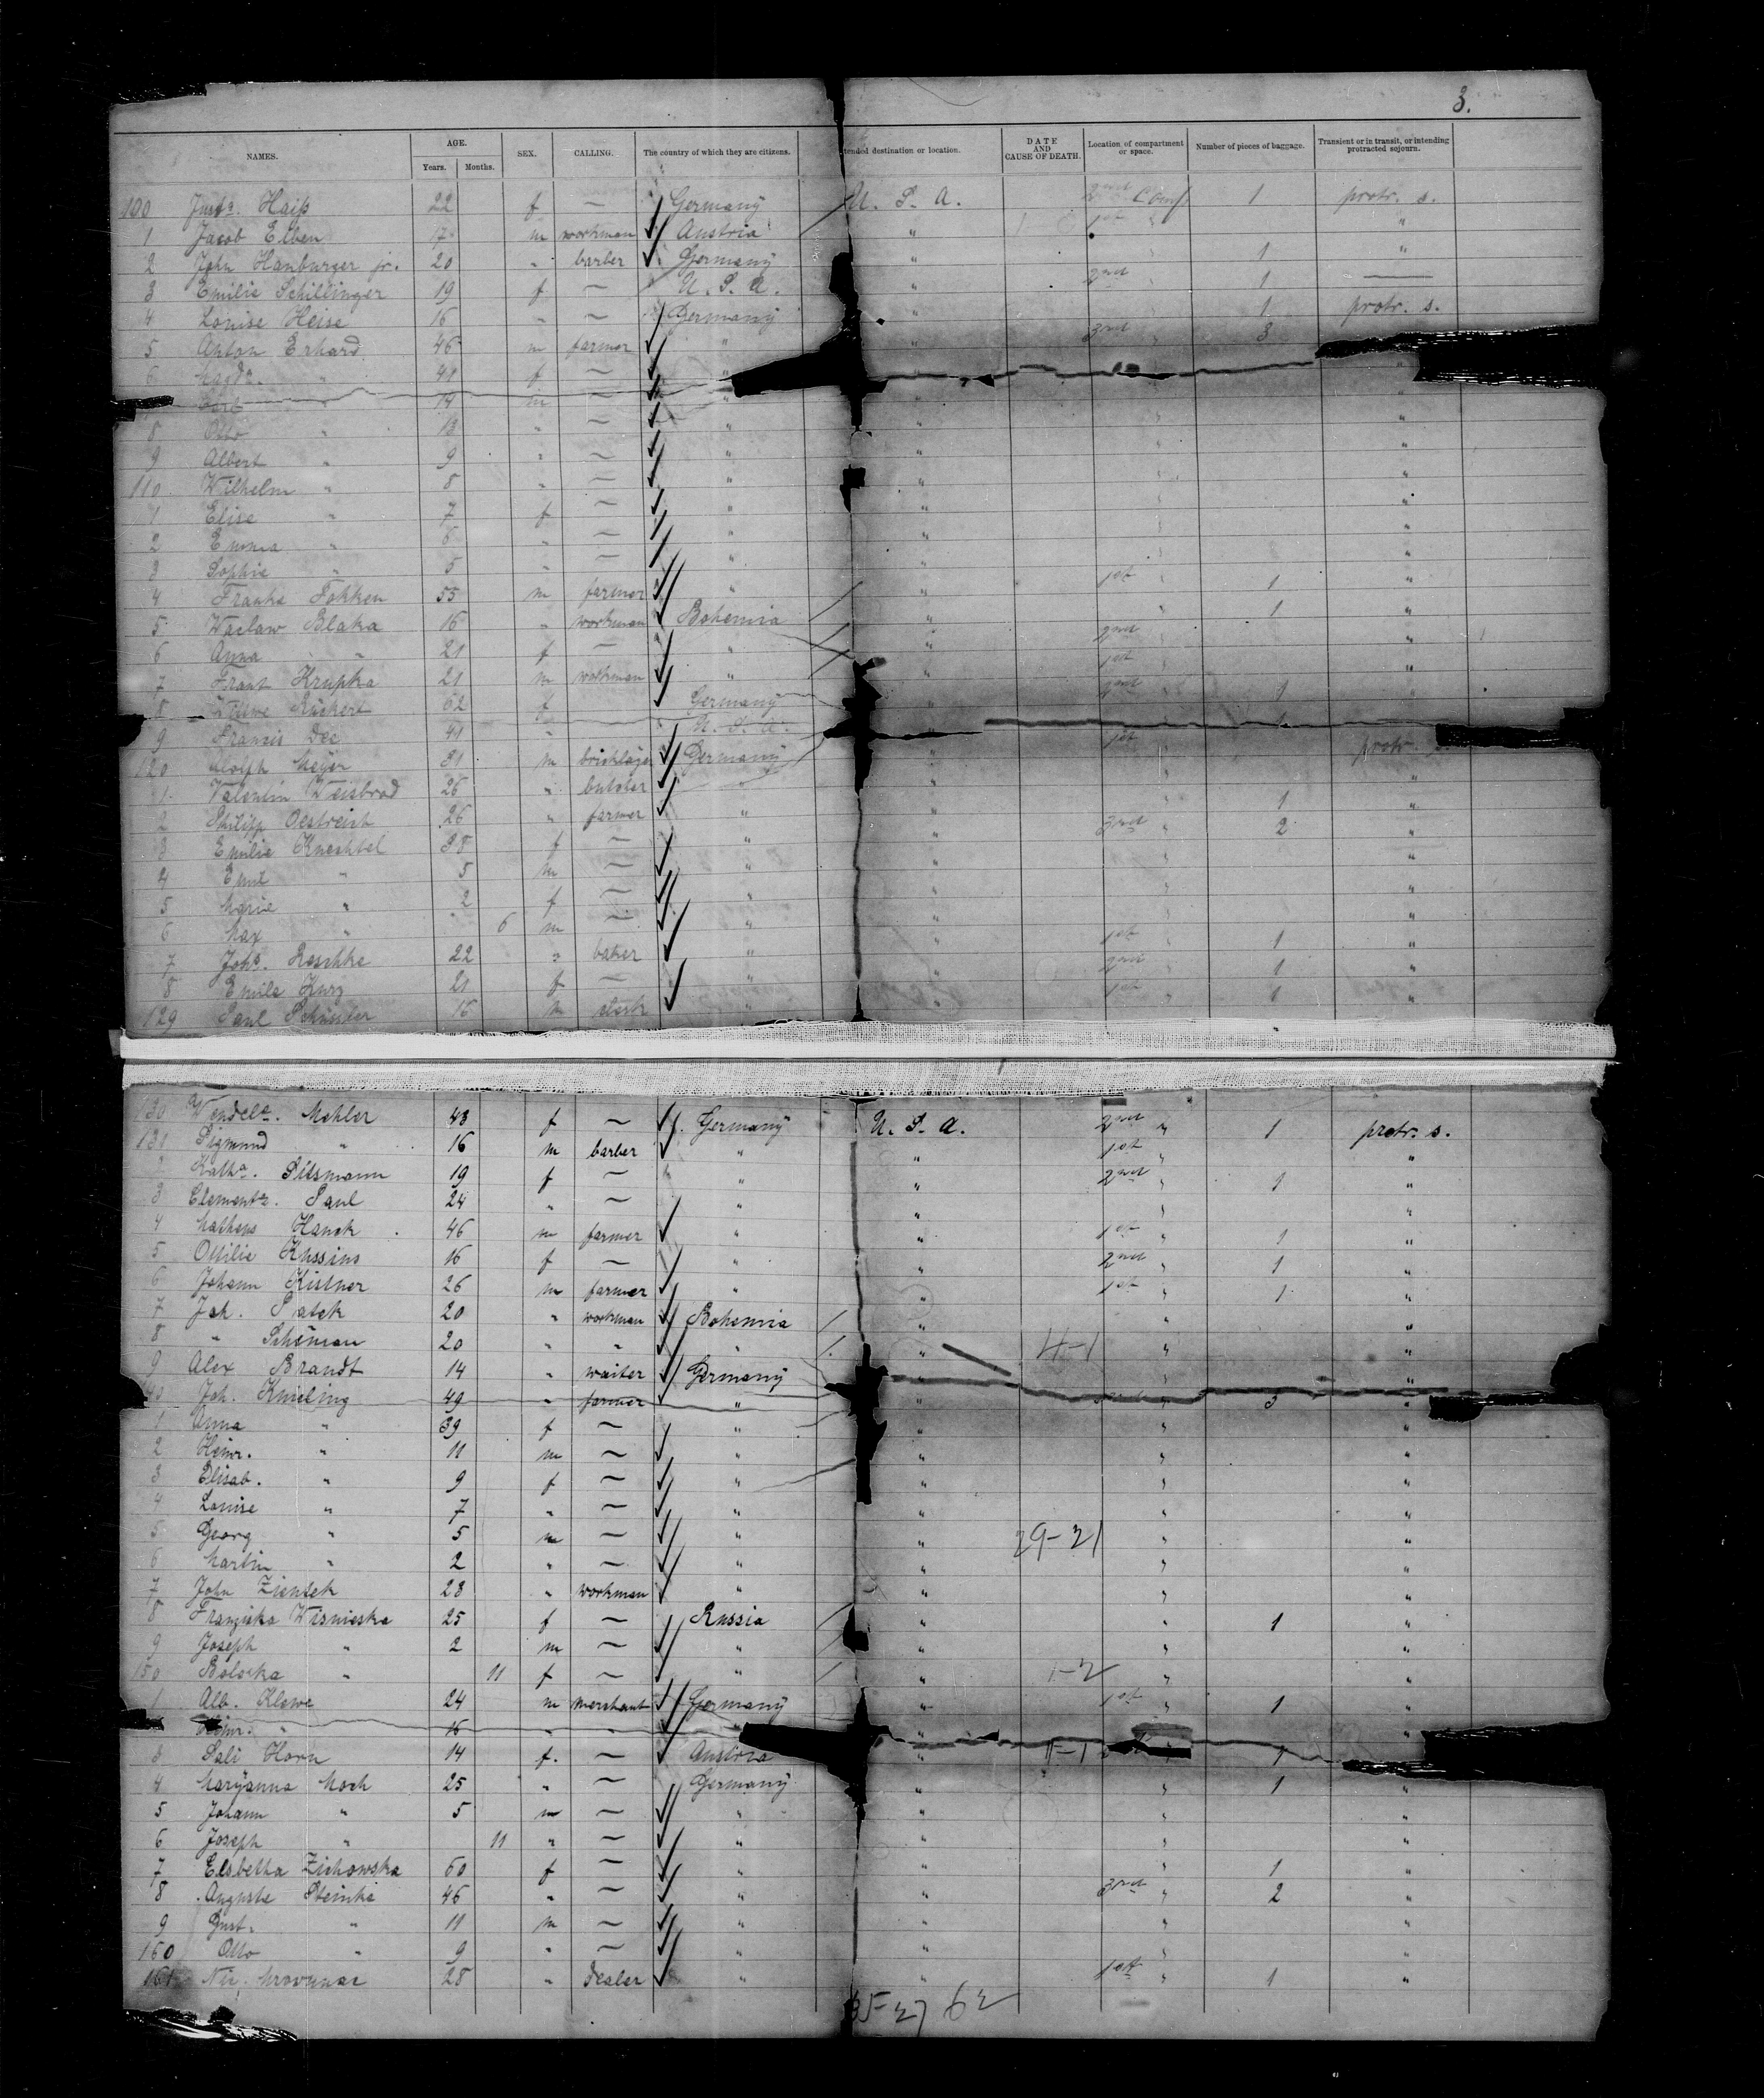 3.
NAMES. AGE. Years. Months. SEX. CALLING. The country of which they are citizens. tended destination or location. DATE AND CAUSE OF DEATH. Location of compartment or space. Number of pieces of baggage. Transient or in transit, or intending protracted sojourn.
100 Haiß 22 f — Germany U. S. A. 2nd Comp 1 protr. s.
1 Jacob Elben 17 m workman Austria " 1st " "
2 John Hamburger jr. 20 " barber Germany " " 1 "
3 Emilie Schillinger 19 f — U. S. A. " 2nd " 1 —
4 Louise Heise 16 " — Germany " " 1 protr. s.
5 Anton Erhard 46 m farmer " " 3rd " 3
6 Magda. " 41 f — " " "
14 m — " " "
8 Otto " 13 " — " " " "
9 Albert " 9 " — " " " "
110 Wilhelm " 8 " — " " " "
1 Elise " 7 f — " " " "
2 Emma " 6 " — " " " "
3 Sophie " 5 " — " " " "
4 Franke Fokken 55 m farmer " " 1st " 1 "
5 Waclaw Blaka 16 " workman Bohemia " " 1 "
6 Anna " 21 f — " " 2nd "
7 Frant Krupka 21 m workman " " 1st "
8 62 f Germany " 2nd 1 "
9 Francis Dee 41 " U. S. A. "
120 Adolph Meyer 31 m bricklayer Germany " 1st protr. s.
1 Valentin Weisbrod 26 " butcher " " " "
2 Philipp Oestreich 26 " farmer " " " 1 "
3 Emilie Knechtel 38 f — " " 3rd " 2 "
4 Emil " 5 m — " " " "
5 Marie " 2 f — " " " "
6 Max " 6 m — " " "
7 Johs. Reschke 22 " baker " " 1st " 1 "
8 Emile Kurz 21 f — " " 2nd " 1 "
129 Paul 16 m clerk " " 1st " 1 "
130 Wendela. Mehler 43 f — Germany U. S. A. 2nd " 1 protr. s.
131 Sigmund " 16 m barber " " 1st " "
2 Katha. 19 f — " " 2nd " 1 "
3 Clementa. Paul 24 " — " " " "
4 Matheus Hanck 46 m farmer " " 1st " 1 "
5 Ottilie Kussius 16 f — " " 2nd " 1 "
6 Johann Kistner 26 m farmer " " 1st " 1 "
7 Joh. 20 " workman Bohemia " " "
8 " Scheman 20 " " " " 4-1 " "
9 Alex Brandt 14 " waiter Germany " "
40 Joh. Kmeling 49 " farmer " 3 "
1 Anna " 39 f — " " " "
2 Heinr. " 11 m — " " " "
3 Elisab. " 9 f — " " " "
4 Louise " 7 " — " " " "
5 Georg " 5 m — " " 29-21 " "
6 Martin " 2 " — " " " "
7 John Zientek 28 " workman " " " "
8 Franziska Wisnieska 25 f — Russia " " 1 "
9 Joseph " 2 m — " " " "
150 Boloska " 11 f — " " 1-2 " "
1 Alb. Klawe 24 m merchant Germany " 1st " 1 "
Heinr. " 16 " " " " "
3 Sali Horn 14 f. — Austria " 1-1 1 "
4 Maryanna Moch 25 " — Germany " " 1 "
5 Johann " 5 m — " " " "
6 Joseph " 11 " — " " " "
7 Elsbetha Zichowska 60 f — " " " 1 "
8 Auguste Steinke 46 " — " " 3rd " 2 "
9 Gust. " 11 m — " " " "
160 Otto " 9 " — " " " "
161 28 " dealer " " 1st " 1 "
35-27 62